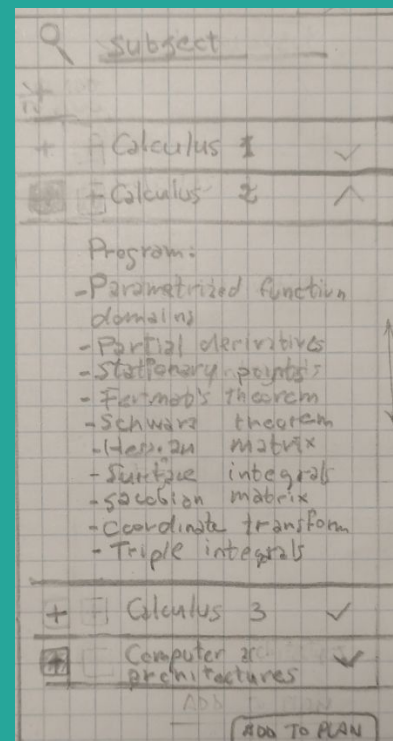 subject
Calculus 1
Calculus 2
Program:
- Parametrized function
domains
- Partial derivatives
- Stationary points
- Fermat's theorem
- Schwarz theorem
- Hessian matrix
- Surface integrals
- Jacobian matrix
- Coordinate transform
- Triple integrals
+ Calculus 3
+ Computer
architectures
ADD TO PLAN